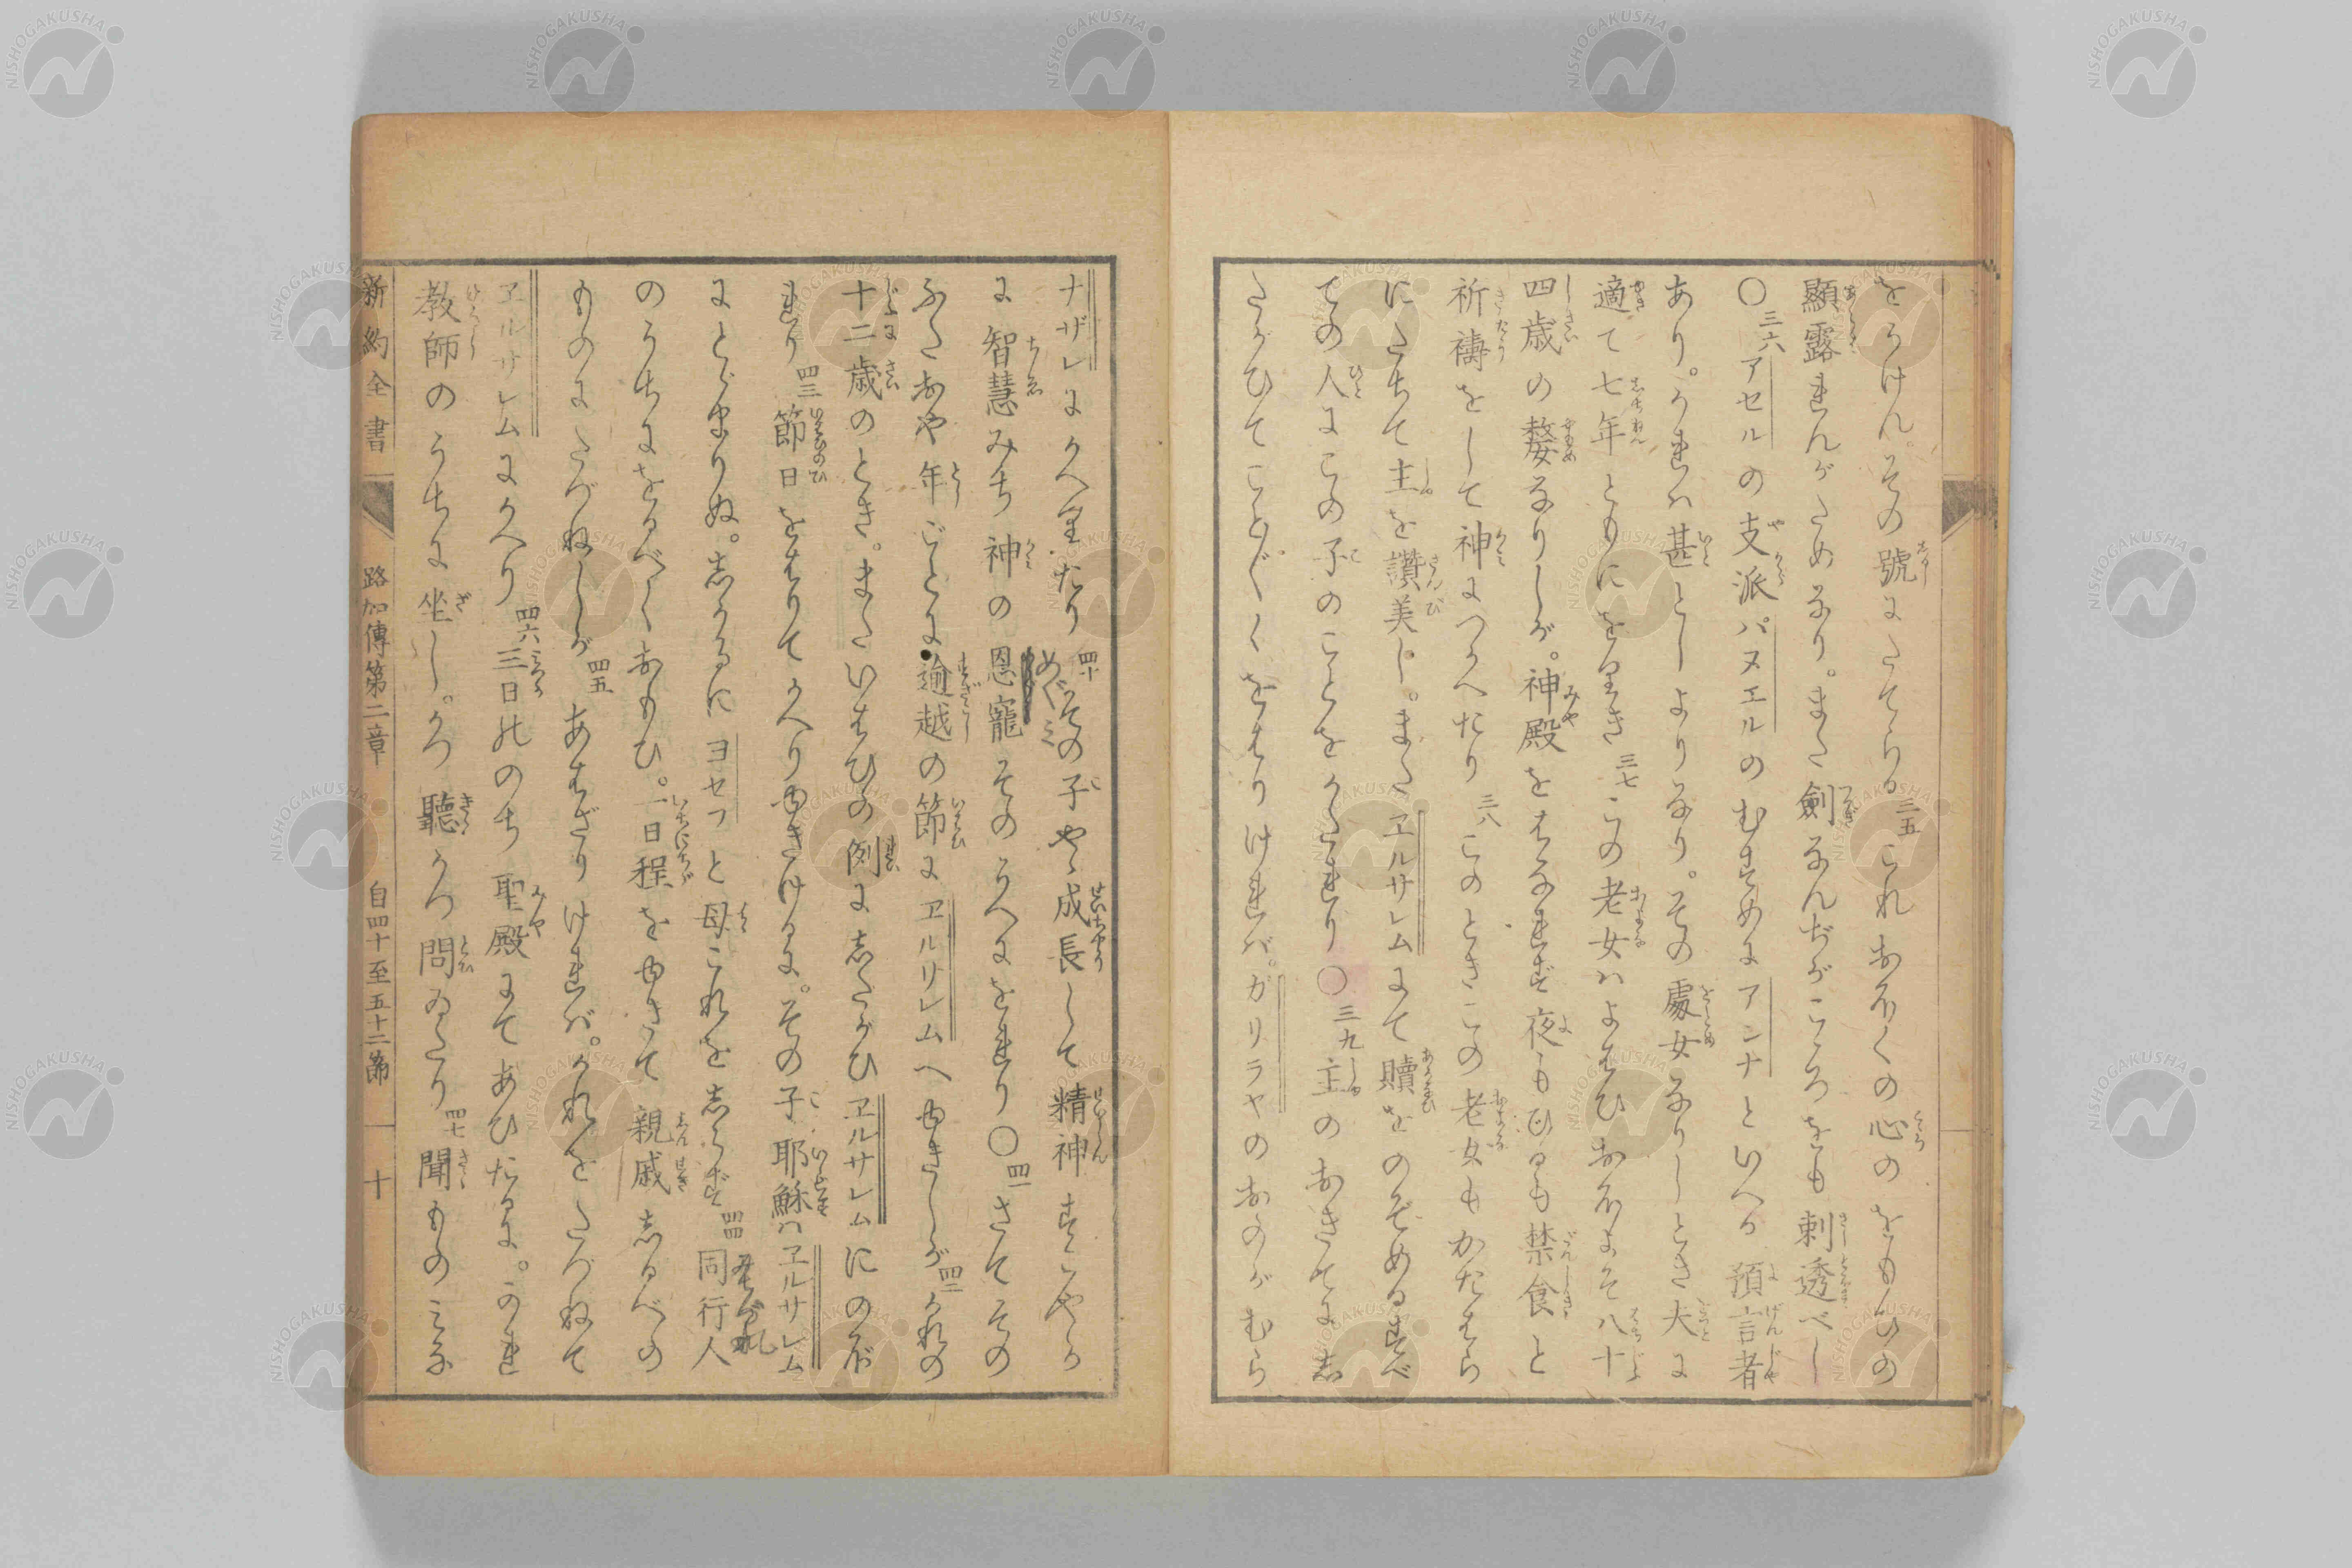 をうけん。その號にたてらる三五これおほくの心のをもひの
顯露れんがためなり。また劍なんぢがこゝろをも刺透べし
〇三六アセルの支派パヌエルのむすめにアンナといへる預言者
あり。うまれハ甚としよりなり。その處女なりしとき夫に
適て七年ともにをりき三七この老女ハよはひおほよそ八十
四歳の嫠なりしが。神殿をはなれず夜もひるも禁食と
祈禱をして神につかへたり三八このときこの老女もかたはら
にたちて主を讃美し。またヱルサレムにて贖をのぞめるすべ
ての人にこの子のことをかたれり〇三九主のおきてに志
たがひてこと〴〵くをはりければ。ガリラヤのおのがむら
ナザレにかへりたり四十その子やゝ成長して精神すこやか
に智慧みち神の恩寵そのうへにをれり〇四一さてその
ふたおや年ごとに逾越の節にヱルサレムへゆきしが四二かれの
十二歳のとき。またいはひの例に志たがひヱルサレムにのぼ
れり四三節日をはりてかへりゆきけるに。その子耶穌ハヱルサレム
にとゞまりぬ。志かるにヨセフと母これを志らず四四同行人
のうちにをるべくおもひ。一日程をゆきて親戚志るべの
ものにたづねしが四五あはざりければ。かれをたづねて
ヱルサレムにかへり四六三日ののち聖殿にてあひたるに。かれ
教師のうちに坐し。かつ聽かつ問ゐたり四七聞ものみな
新約全書 路加傳第二章 自四十至五十二節 十
NISHOGAKUSHA